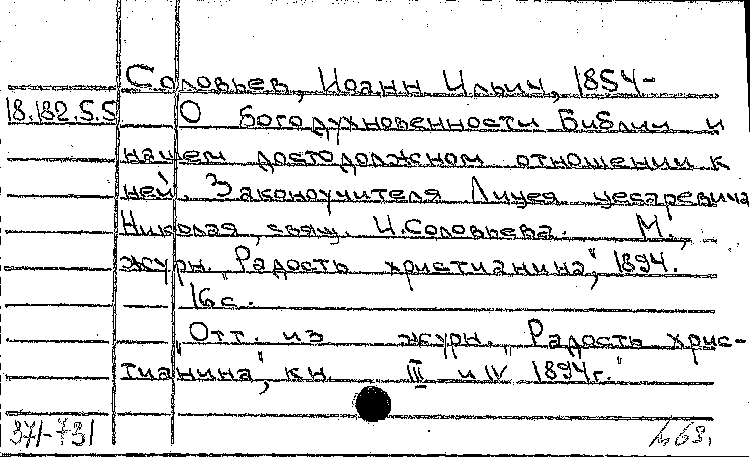 Соловьев, Иоанн Ильич, 1854-
18.182.5.5 О богодухновенности Библии и
нашем достодолжном отношении к
ней. Законоучителя Лицея цесаревича
Николая свящ. И.Соловьева. М.,
журн. "Радость христианина", 1894.
16 с.
"Отт. из журн. "Радость хрис-
тианина", кн. III и IV 1894г."
371-731